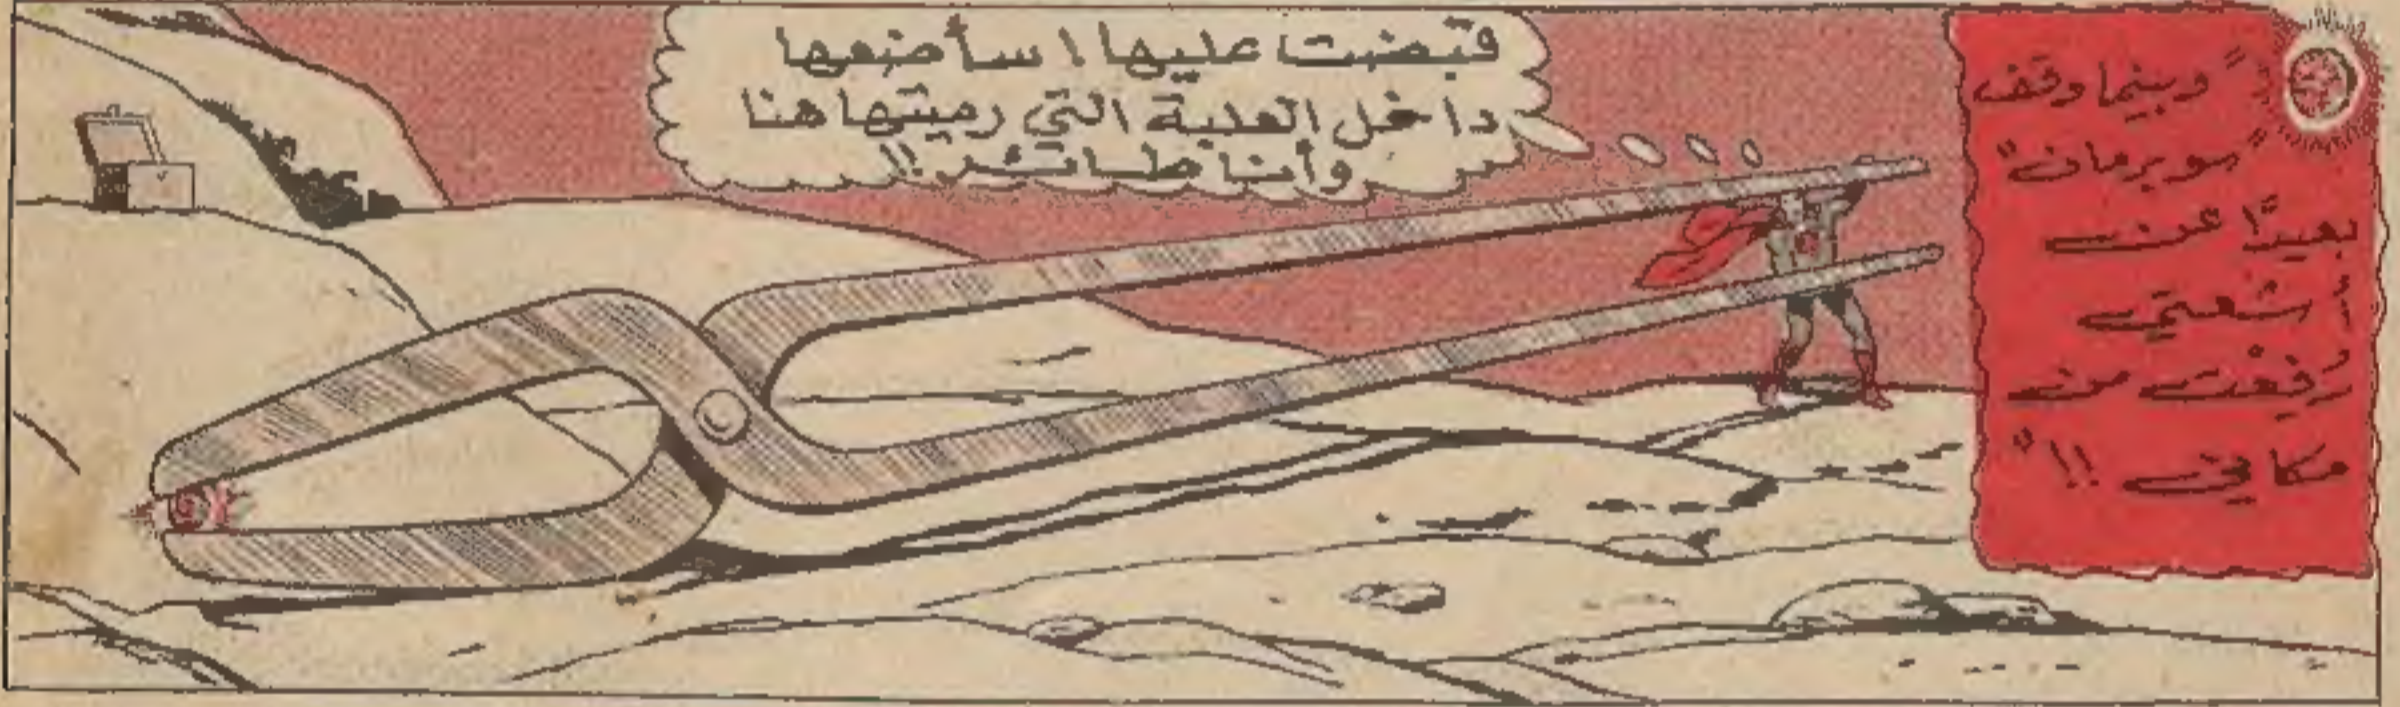 "وبينما وقف
"سوبرمان"
بعيدًا عن
أشعتي
رُفِعْت من
مكاني !!"
قبضت عليها ! سأضعها
داخل العلبة التي رميتها هنا
وأنا طائر !!